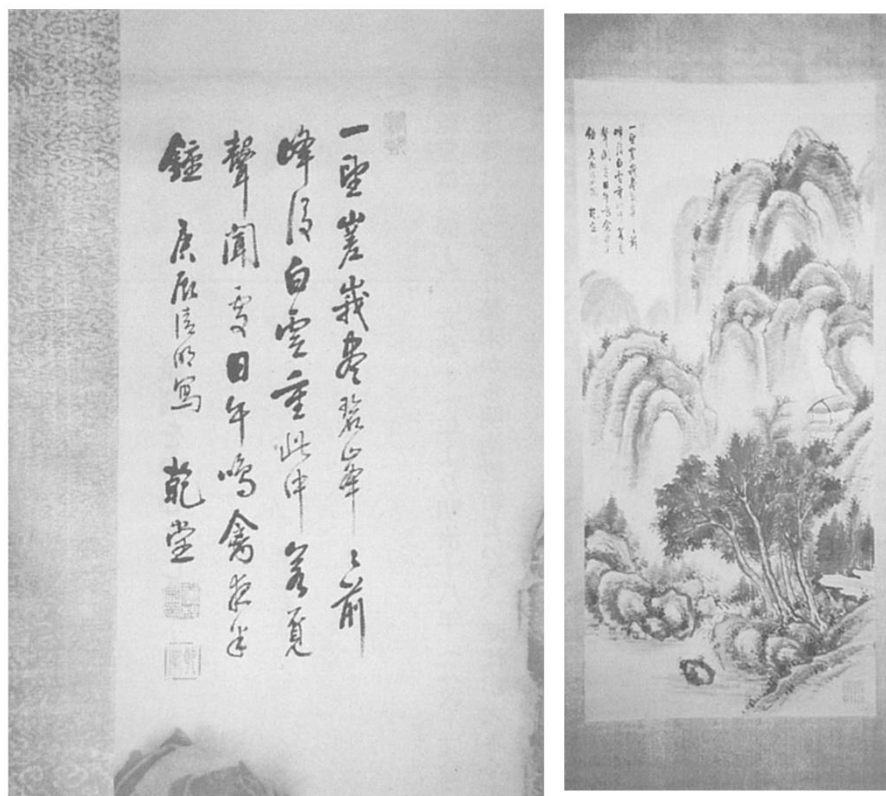 一望嵳峩盡碧峯〻前
峰後白雲重此中若覓
聲聞處日午鳴禽夜半
鐘 庚辰清明寫 乾堂